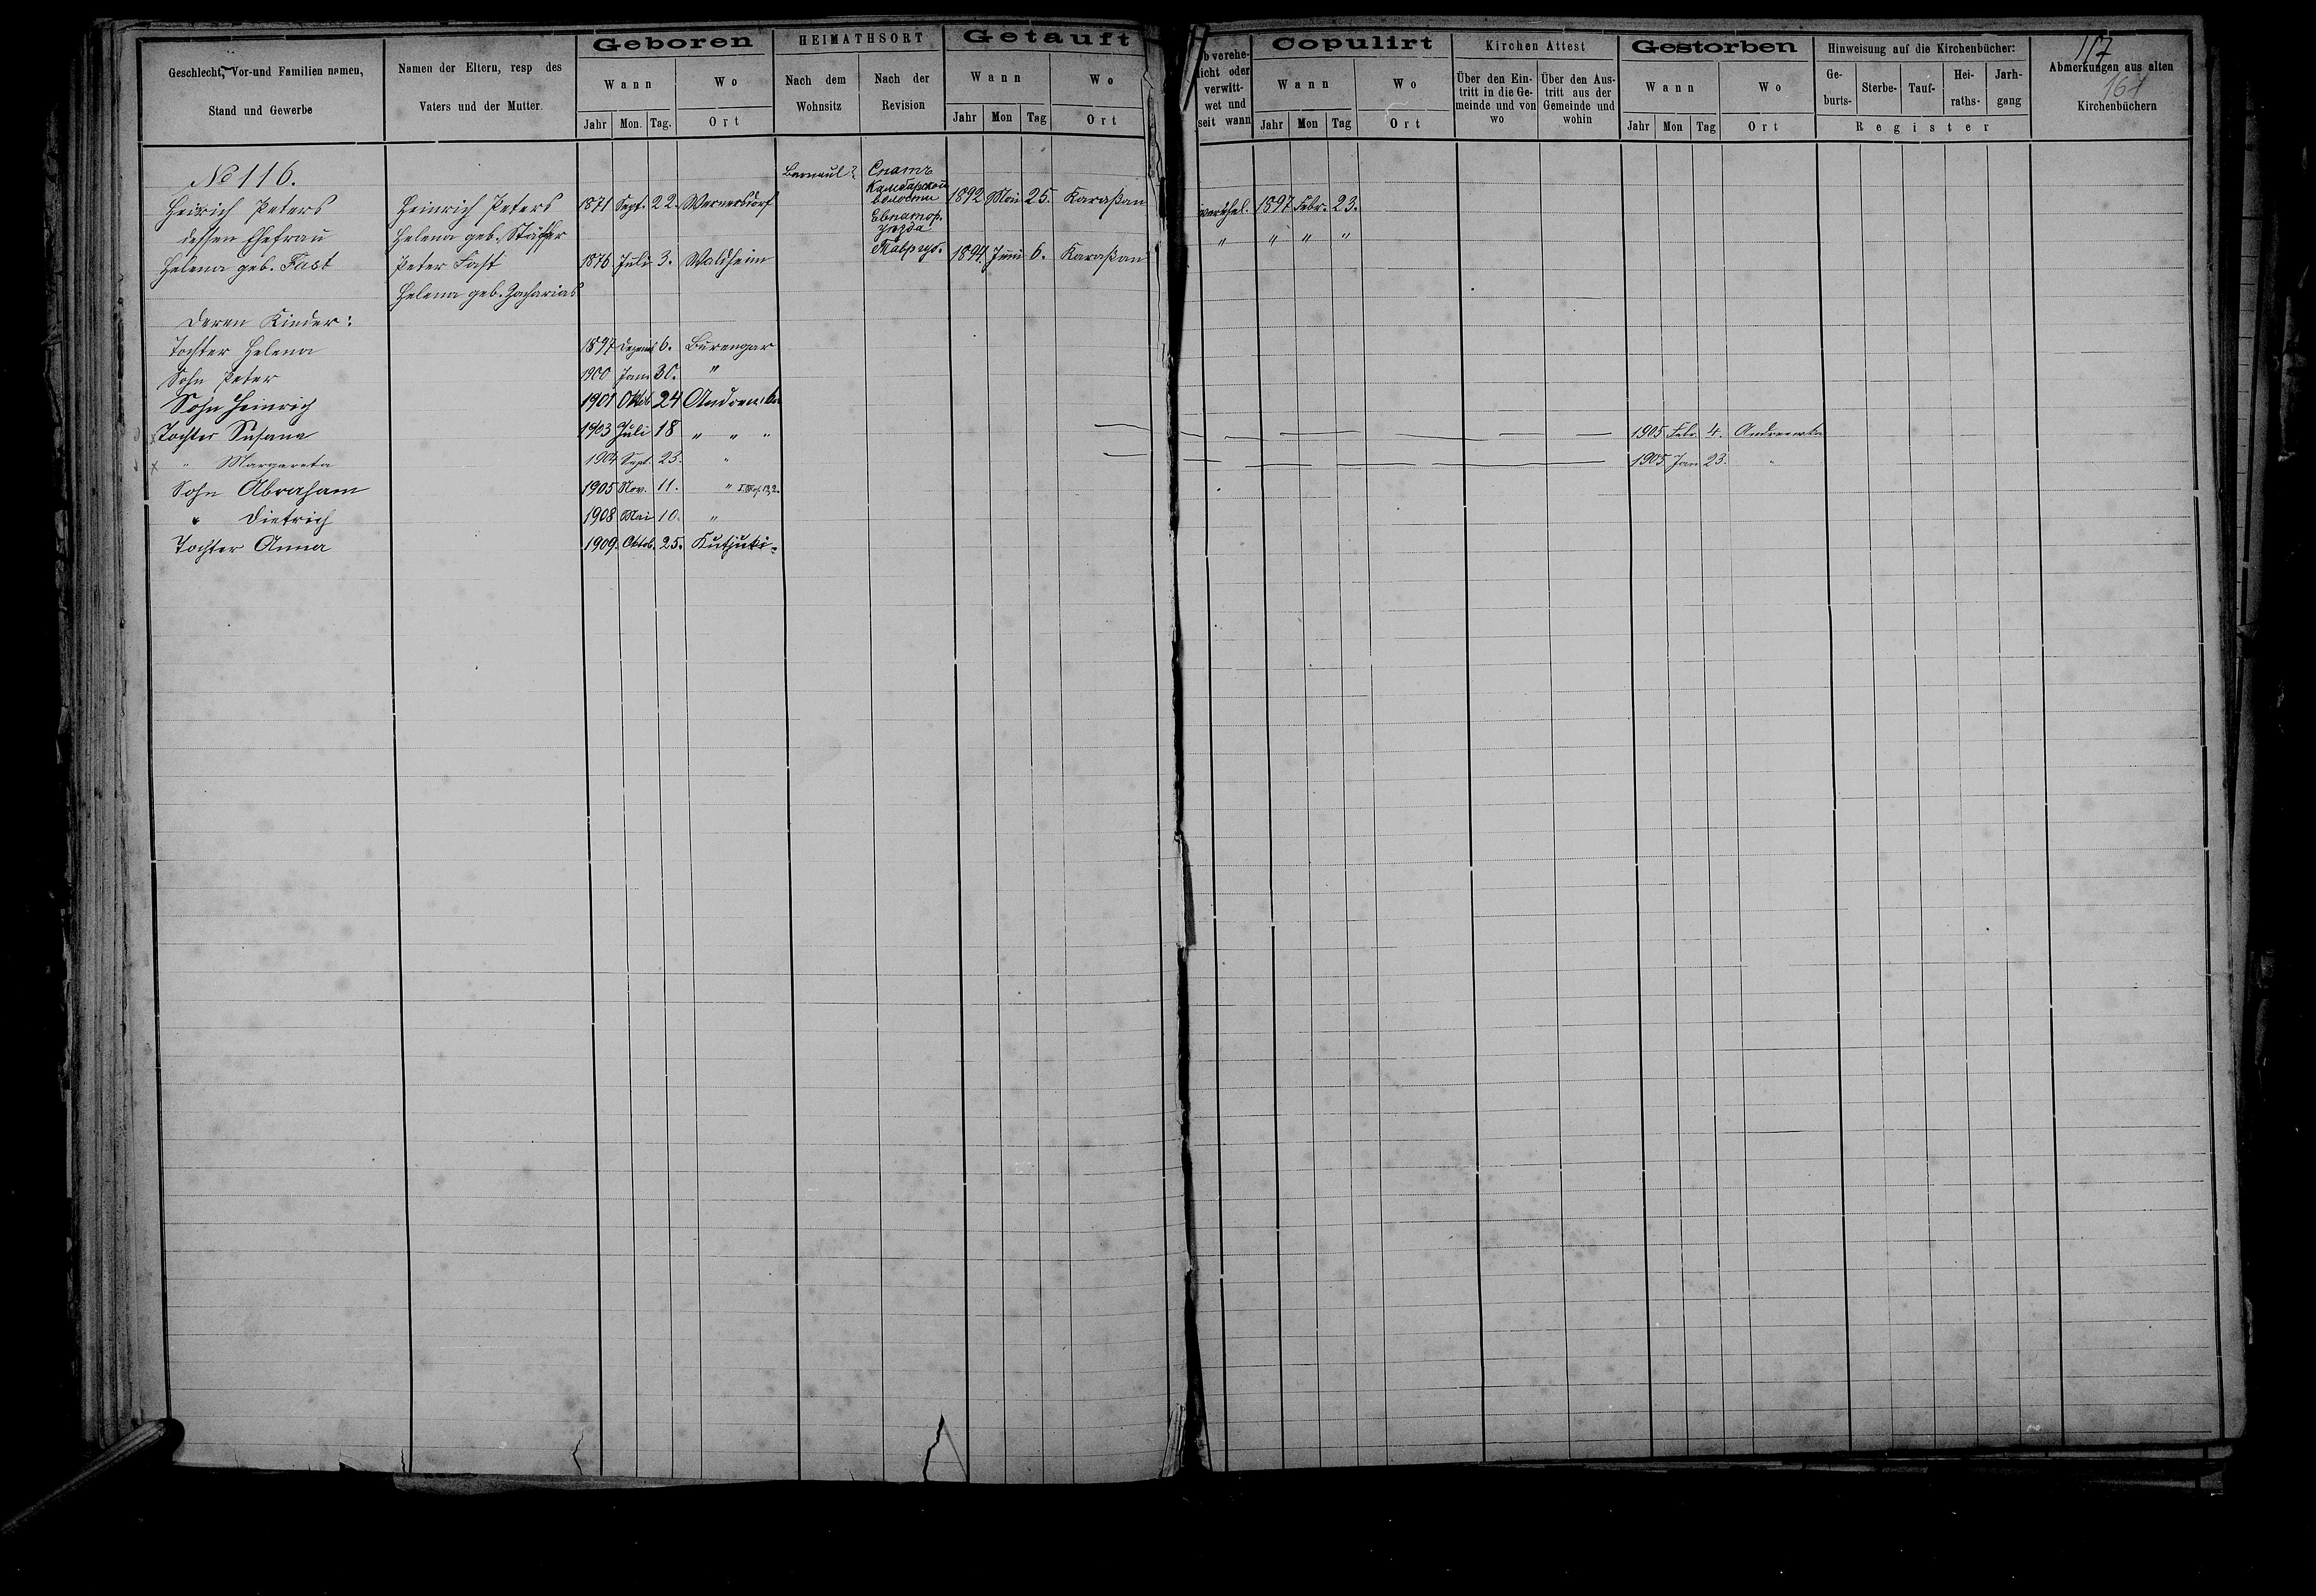 Geschlecht, Vor-und Familien namen,
Stand und Gewerbe
Namen der Eltern, resp des
Vaters und der Mutter.
Geboren
Wann
Wo
Jahr Mon. Tag. Ort
HEIMATHSORT
Nach dem
Wohnsitz
Nach der
Revision
Getauft
Wann
Wo
Jahr Mon Tag Ort
b verehe-
licht oder
verwitt-
wet und
seit wann
Copulirt
Wann
Wo
Jahr Mon Tag Ort
Kirchen Attest
Über den Ein-
tritt in die Ge-
meinde und von
wo
Über den Aus-
tritt aus der
Gemeinde und
wohin
Gestorben
Wann
Wo
Jahr Mon Tag Ort
Hinweisung auf die Kirchenbücher:
Ge-
burts-
Sterbe-
Tauf-
Hei-
raths-
Jarh-
gang
Register
117
Abmerkungen aus alten
Kirchenbüchern
No 116.
Barnaul
Спатъ
волости
Евпатор.
уезда
Тавр губ.
Heinrich Peters Heinrich Peters 1871 Sept. 22. Wernersdorf 1892 Mai 25. Karaßan verehel. 1897 Febr. 23.
dessen Ehefrau Helena geb. " " " "
Helena geb. Fast Peter Fast 1876 Juli 3. Waldheim 1894 Juni 6. Karaßan
Helena geb. Zacharias
Deren Kinder:
Tochter Helena 1897 Dezemb 6. Burengar
Sohn Peter 1900 Janu 30. "
Sohn Heinrich 1901 Oktob 24
Tochter Susana 1903 Juli 18 " " " 1905 Febr. 4. Andreewka
" Margareta 1904 Sept. 23. " 1905 Jan 23. "
Sohn Abraham 1905 Nov. 11. "
" Dietrich 1908 Mai 10. "
Tochter Anna 1909. Oktob. 25. Kutjuki.